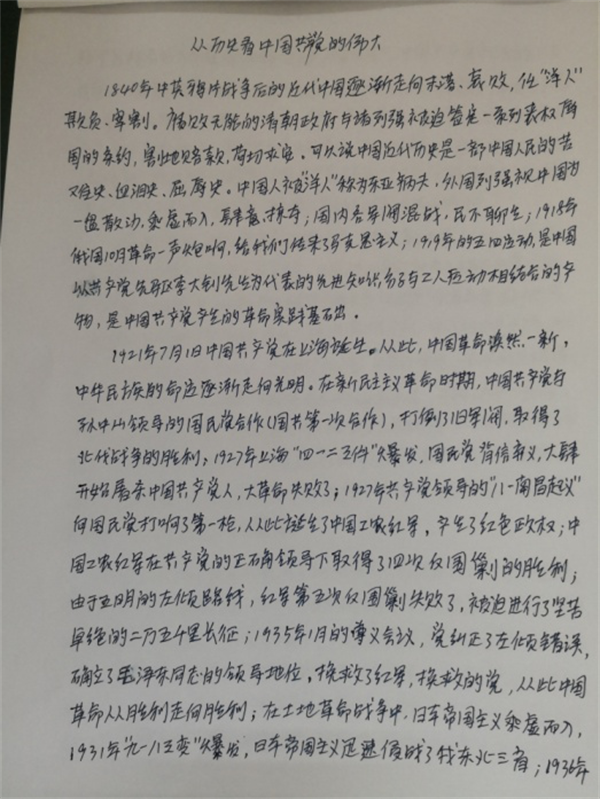 从历史看中国共党的伟大
1840年中英鸦片战争后的近代中国逐渐走向末落、衰败,任“洋人”
欺负、宰割。腐败无能的清朝政府与诸列强被迫签定一系列丧权辱
国的条约,割地赔款,苟且求安。可以说中国近代历史是一部中国人民的苦
难史、血泪史、屈辱史。中国人被“洋人”称为东亚病夫,外国列强视中国为
一盘散沙,乘虚而入,肆意掠夺;国内各军阀混战,民不聊生;1918年
俄国10月革命一声炮响,给我们传来了马克思主义;1919年的五四运动,是中国
以共产党先驱李大钊先生为代表的先进知识分子与工人运动相结合的产
物,是中国共产党产生的革命实践基石出。
1921年7月1日中国共产党在上海诞生。从此,中国革命焕然一新,
中华民族的命运逐渐走向光明。在新民主主义革命时期,中国共产党与
孙中山领导的国民党合作(国共第一次合作),打倒了旧军阀,取得了
北伐战争的胜利;1927年上海“四一二事件”爆发,国民党背信弃义,大肆
开始屠杀中国共产党人,大革命失败了;1927年共产党领导的“八一南昌起义”
向国民党打响了第一枪,从此诞生了中国工农红军,产生了红色政权;中
国工农红军在共产党的正确领导下取得了四次反围剿的胜利;
由于王明的左倾路线,红军第五次反围剿失败了,被迫进行了坚苦
卓绝的二万五千里长征;1935年1月的遵义会议,党纠正了左倾错误,
确立了毛泽东同志的领导地位,挽救了红军,挽救的党,从此中国
革命从胜利走向胜利;在土地革命战争中,日本帝国主义乘虚而入,
1931年“九一八事变”爆发,日本帝国主义迅速侵战了我东北三省;1936年